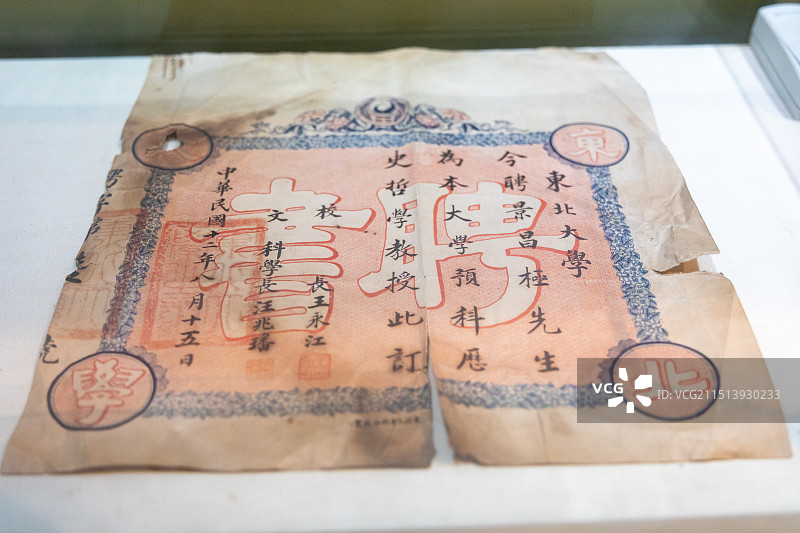 聘書
東
北
學
東北大學
今聘景昌極先生
為本大學預科厯
史哲學教授此訂
校長王永江
文科學長汪兆璠
中華民國十二年八月十五日
VCG
ID:VCG211513930233